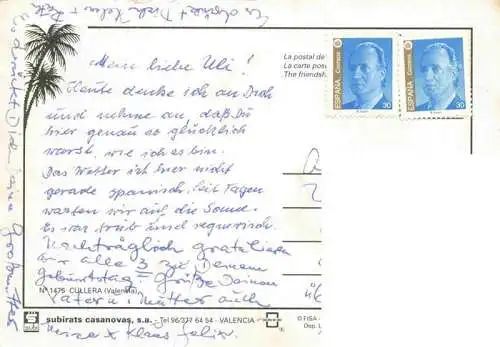 Mein lieber Uli!
Heute denke ich an Dich
und nehme an, daß Du
hier genau so glücklich
warst, wie ich es bin.
Das Wetter ist hier nicht
gerade spanisch. Seit Tagen
warten wir auf die Sonne.
Es war trüb und regnerisch.
Nachträglich gratulieren
wir alle 3 zu Deinem
Geburtstag. Grüße Deinen
Vater u. Mutter auch
Klaus Felix.
Es drückt Dich
Deine Großmutter
La postal de
La carte pos
The friendsh
ESPAÑA
Correos
30
ESPAÑA
Correos
30
Nº 1475 CULLERA (Valencia)
subirats casanovas, s.a. - Tel 96/377 64 54 - VALENCIA
© FISA -
Dep. L